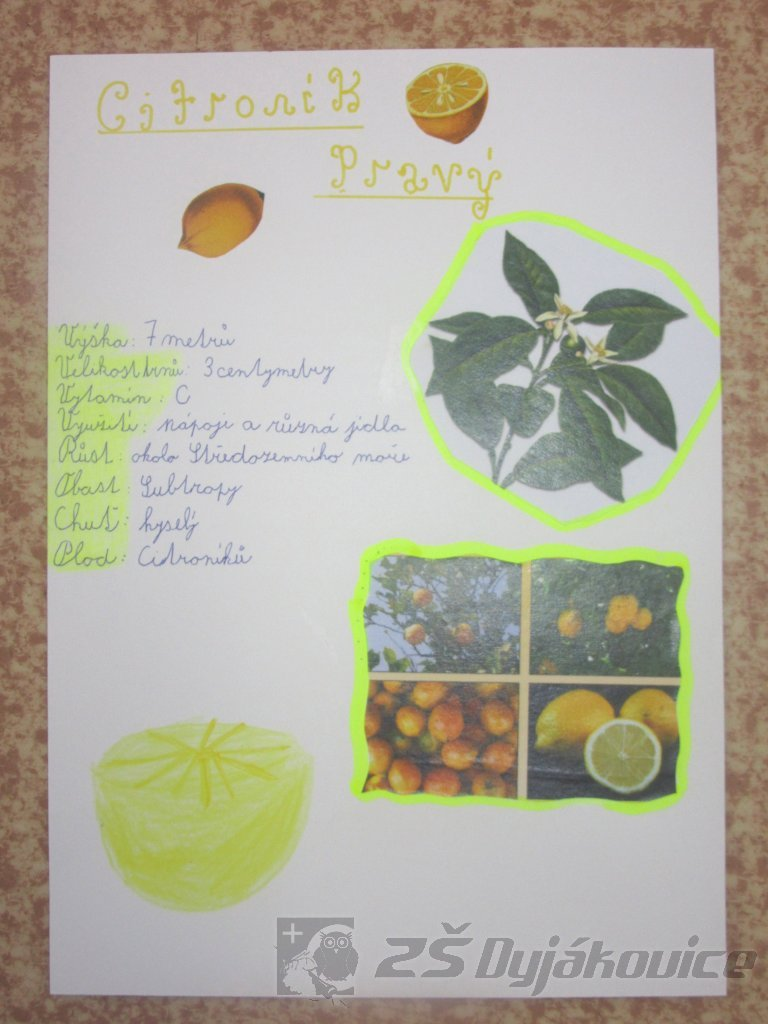 Citroník
Pravý
Výška: 7 metrů
Velikost trnů: 3 centymetry
Vytamín: C
Využití: nápoji a různá jidla
Růst: okolo Středozemního moře
Obast: Subtropy
Chuť: kyselý
Plod: Citroníků
ZŠ Dyjákovice